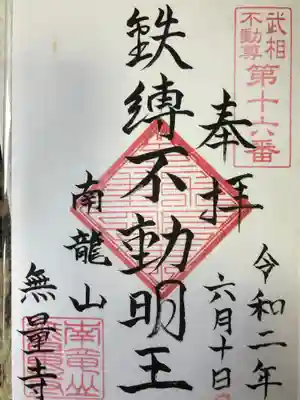 武相
不動尊
第十六番
奉拝
令和二年
六月十日
鉄縛不動明王
南龍山
無量寺